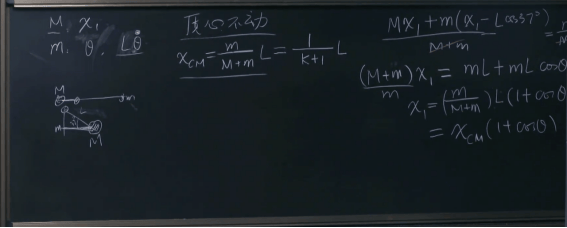 M x₁
m. θ. Lθ̇
质心不动
x_CM = m/(M+m) L = 1/(K+1) L
(Mx₁ + m(x₁ - L cos37°))/(M+m) =
(M+m)/m x₁ = mL + mL cosθ
x₁ = (m/(M+m)) L (1 + cosθ
= x_CM (1 + cosθ)
M
m
M